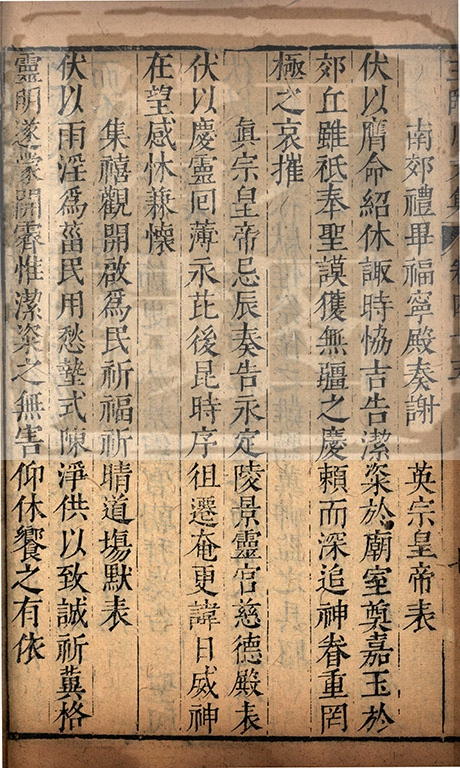 南郊禮畢福寧殿奏謝　英宗皇帝表
伏以膺命紹休諏時恊吉告潔粢於廟室奠嘉玉於
郊丘雖祇奉聖謨獲無疆之慶頼而深追神眷重罔
極之哀摧
眞宗皇帝忌辰奏告永定陵景靈宮慈德殿表
伏以慶靈回薄永芘後昆時序徂遷奄更諱日威神
在望感休兼懷
集禧觀開啟爲民祈福祈晴道塲默表
伏以雨淫爲菑民用愁墊式陳淨供以致誠祈冀格
靈明遂蒙開霽惟潔粢之無害仰休饗之有依